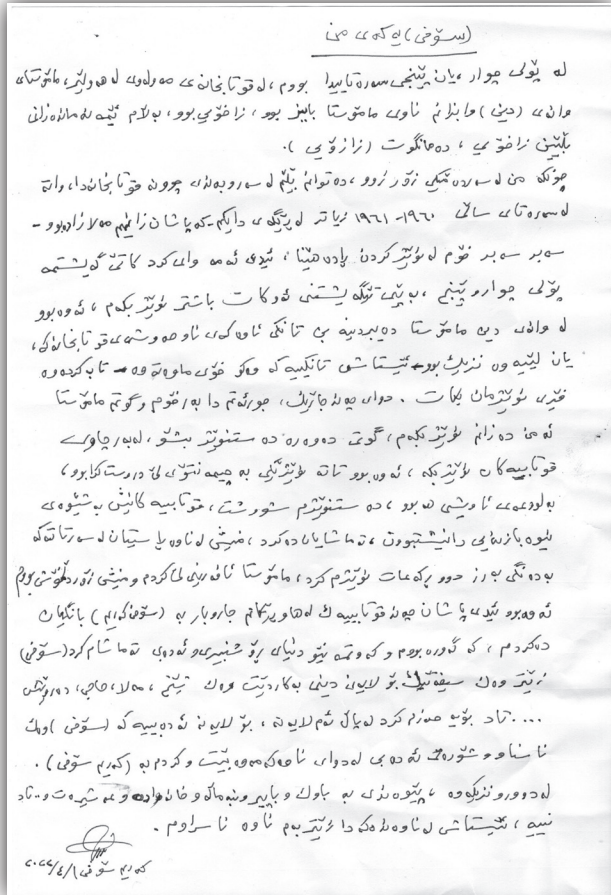 (سۆفی) یەکەی من
لە پۆلی چوار، یان پێنجی سەرەتاییدا بووم، لە قوتابخانەی مەولەوی لە هەولێر، مامۆستای
وانەی (دینی) وابزانم ناوی مامۆستا بایز بوو، زاخۆیی بوو، بەڵام ئێمە نەماندەزانی
بڵێین زاخۆیی، دەمانگوت (زازۆیی).
چونکە من لە سەردەمێکی زۆر زوو، دەتوانم بڵێم لە سەروبەندی چوونە قوتابخانەدا، واتە
لە سەرەتای ساڵی ١٩٦٠-١٩٦١ زیاتر لە ڕێگەی دایکم - کە پاشان زانیم مەلازادە بوو -
سەبر سەبر خۆم لە نوێژکردن ڕادەهێنا، ئیدی ئەمە وای کرد کاتێ گەیشتمە
پۆلی چوار و پێنج، بەپێی تێگەیشتنی ئەوکات باشتر نوێژ بکەم، ئەوە بوو
لە وانەی دین مامۆستا دەیبردینە بن تانکی ئاوەکەی ناو حەوشەی قوتابخانەکە،
یان لێیەوە نزیک بوو - ئێستاش تانکییەکە وەکو خۆی ماوەتەوە - تا بەکردەوە
فێری نوێژمان بکات. دوای چەند جارێک، جورئەتم دا بەر خۆم و گوتم مامۆستا
ئەمن دەزانم نوێژ بکەم، گوتی دەوەرە دەستنوێژ بشۆ، لەبەر چاوی
قوتابییەکان نوێژ بکە، ئەوە بوو تاتە نوێژێکی بە چیمەنتۆی لێ دروستکرابوو،
بەلوعەی ئاویشی هەبوو، دەستنوێژم شووشت، قوتابییەکانیش بە شێوەی
نیوە بازنەیی دانیشتبوون، تەماشایان دەکرد، منیش لە ناوەڕاستیان لەسەر تاتەکە
بە دەنگی بەرز دوو ڕکعات نوێژم کرد، مامۆستا ئافەرینی لێ کردم و منیش زۆر دڵخۆش بووم
ئەوە بوو ئیدی پاشان چەند قوتابییەک لە هاوڕێکانم جاروبار بە (سۆفی کەریم) بانگیان
دەکردم، کە گەورە بووم و کەوتمە نێو دنیای ڕۆشنبیری و ئەدەبی تەماشام کرد (سۆفی)
زێتر وەک سیفەتێک بۆ لایەنی دینی بەکاردێت وەک شێخ، مەلا، حاجی، دەروێش
.... تاد بۆیە حەزم کرد لەپاڵ ئەم لایەنە، بۆ لایەنە ئەدەبییەکە (سۆفی) وەک
ناسناو و شۆرەت ئەدەبی لە دوای ناوەکەمەوە بێت و کردم بە (کەریم سۆفی).
لە دوور و نزیکەوە، پێوەندی بە باوک و باپیر و بنەماڵە و خانەوادە و عەشیرەت و..تاد
نییە، ئێستاشی لە ناوەندەکەدا زێتر بەم ناوە ناسراوم.
کەریم سۆفی ٢٠٢٢/٤/١